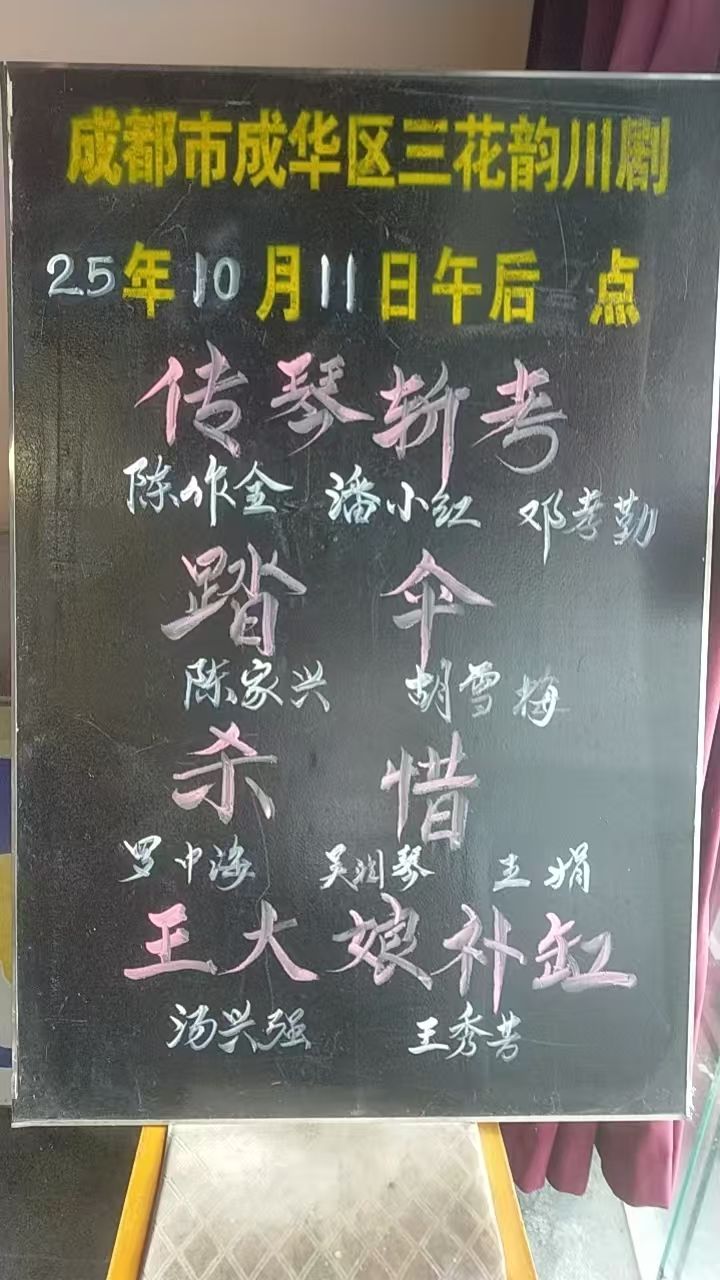 成都市成华区三花韵川剧
25年10月11日午后 点
传琴斩考
陈作全 潘小红 邓孝勤
踏伞
陈家兴 胡雪梅
杀惜
罗中海 吴润琴 王娟
王大娘补缸
汤兴强 王秀芳